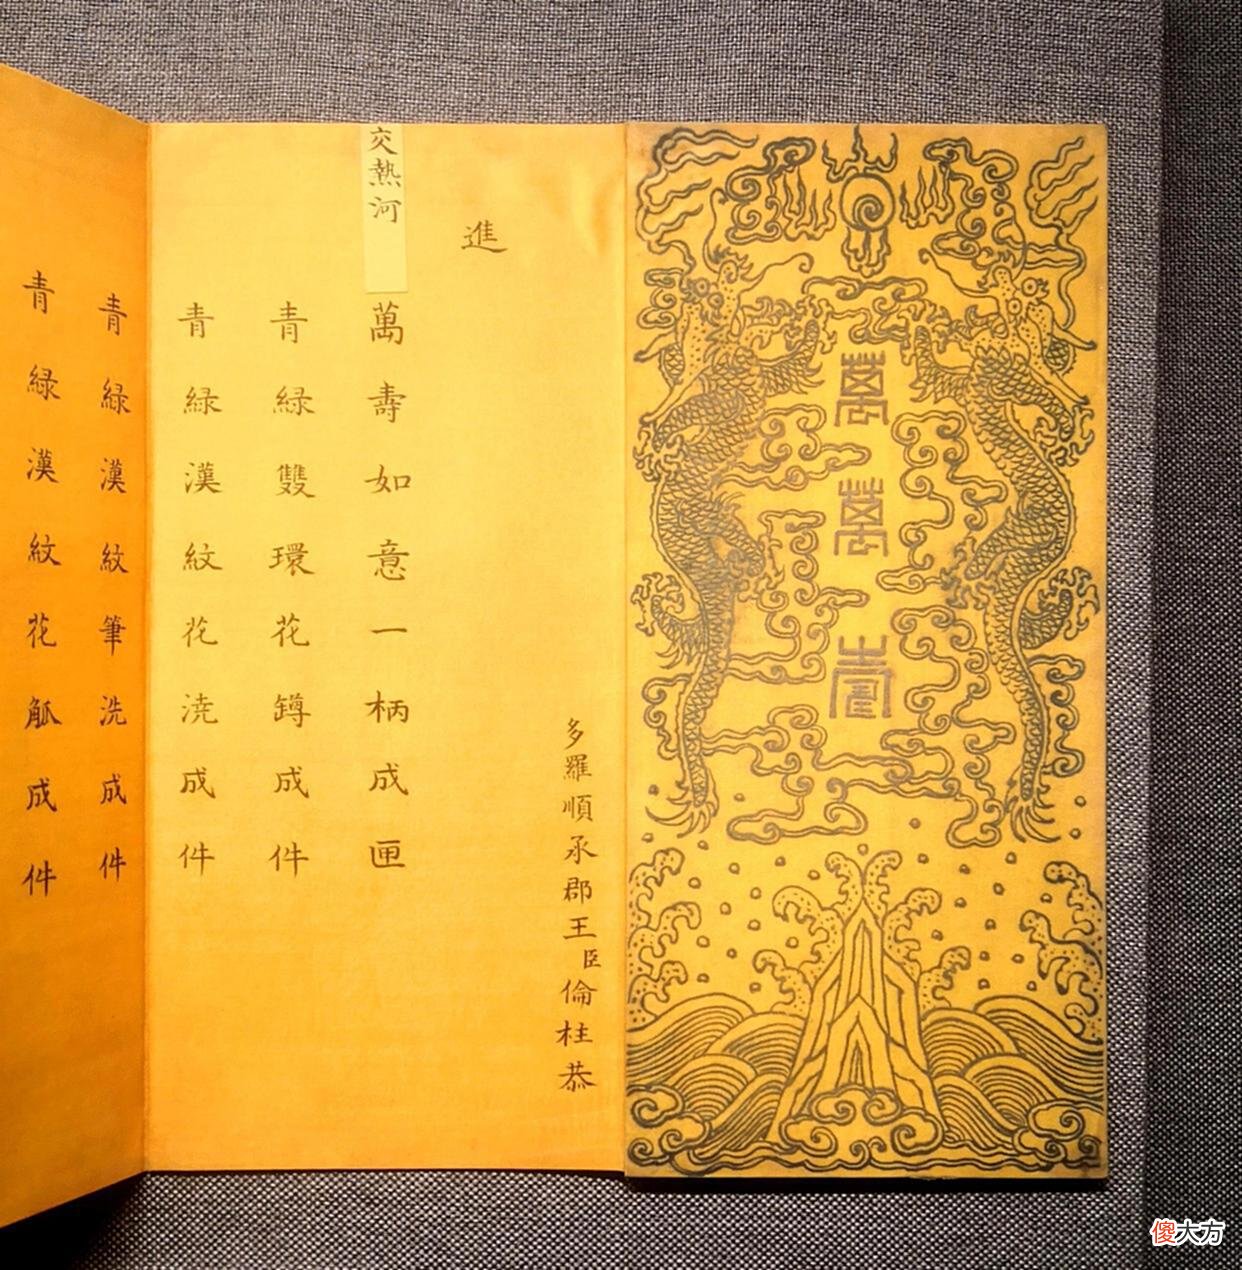 萬萬壽
多羅順承郡王臣倫柱恭
進
交熱河
萬壽如意一柄成匣
青緑雙環花罇成件
青緑漢紋花澆成件
青緑漢紋筆洗成件
青緑漢紋花觚成件
傻大方